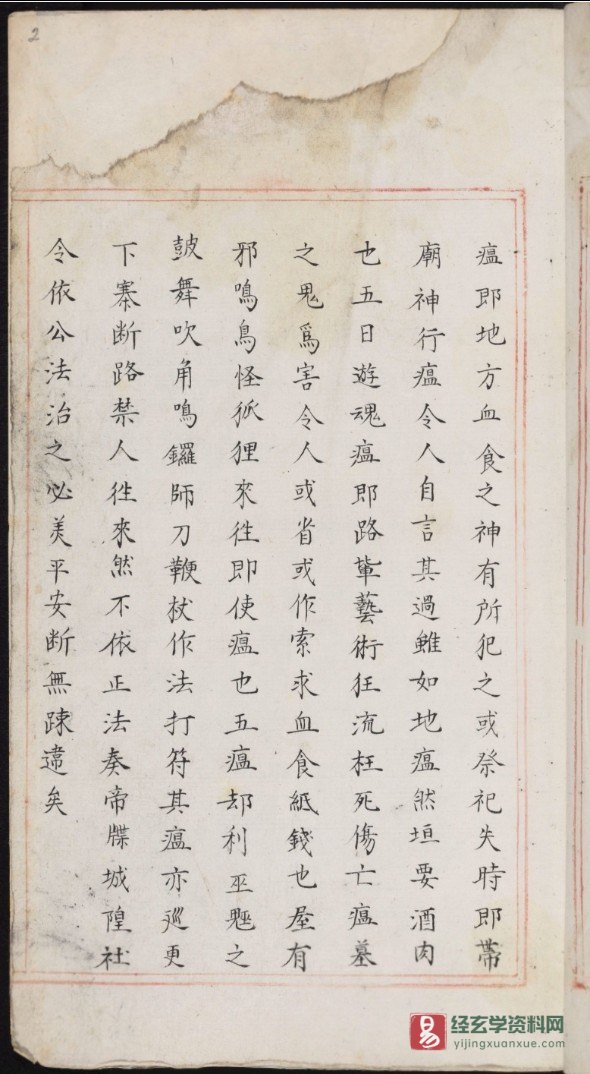 2
瘟即地方血食之神有所犯之或祭祀失時即帶
廟神行瘟令人自言其過雖如地瘟然垣要酒肉
也五日遊魂瘟即路軰藝術狂流枉死傷亡瘟墓
之鬼爲害令人或省或作索求血食紙錢也屋有
邪鳴鳥怪狐狸來徃即使瘟也五瘟却利巫魁之
皷舞吹角鳴鑼師刀鞭杖作法打符其瘟亦巡更
下寨断路禁人徃來然不依正法奏帝牒城隍社
令依公法治之必美平安断無踈違矣
易
经玄学资料网
yijingxuanxue.com